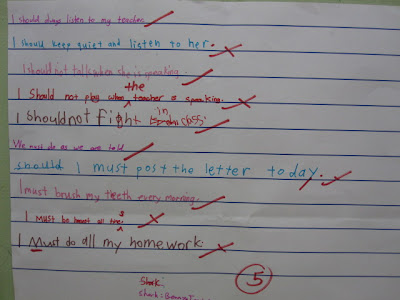 I should always listen to my teacher.
I should keep quiet and listen to her.
I should not talk when she is speaking.
the
I should not play when teacher is speaking.
in
I should not fight class.
We must do as we are told
should I must post the letter today.
I must brush my teeth every morning.
I must be at all
I must do all my homework.
5
Shark:
Shark: